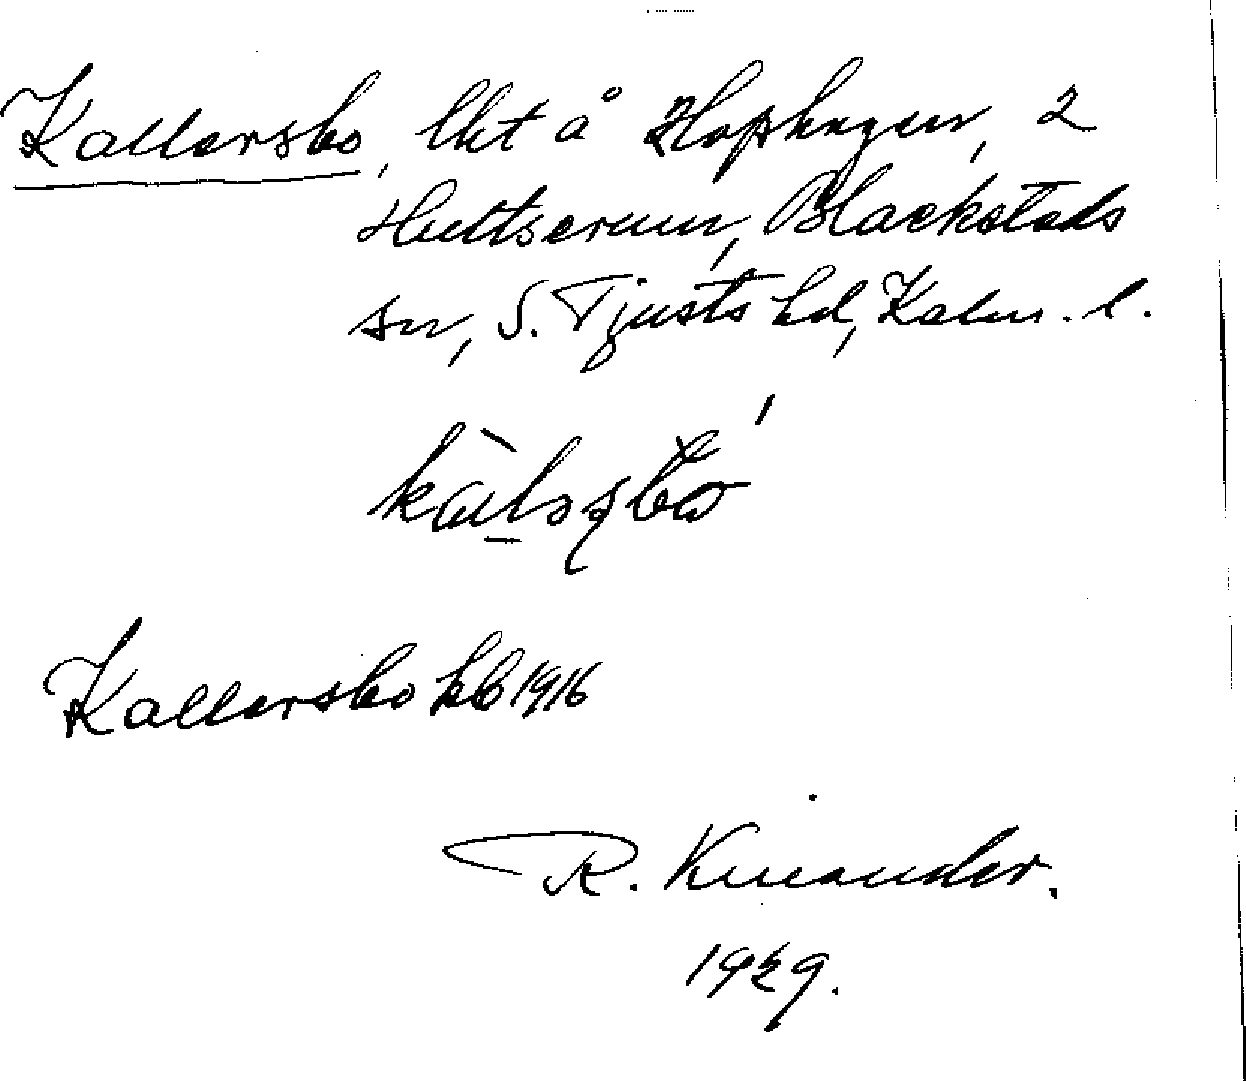 Kallersbo, lht å Hophagen, 2
Hultserum, Blackstads
sn, S. Tjusts hd, Kalm. l.
Kallersbo kb 1916
R. Kinander.
1929.